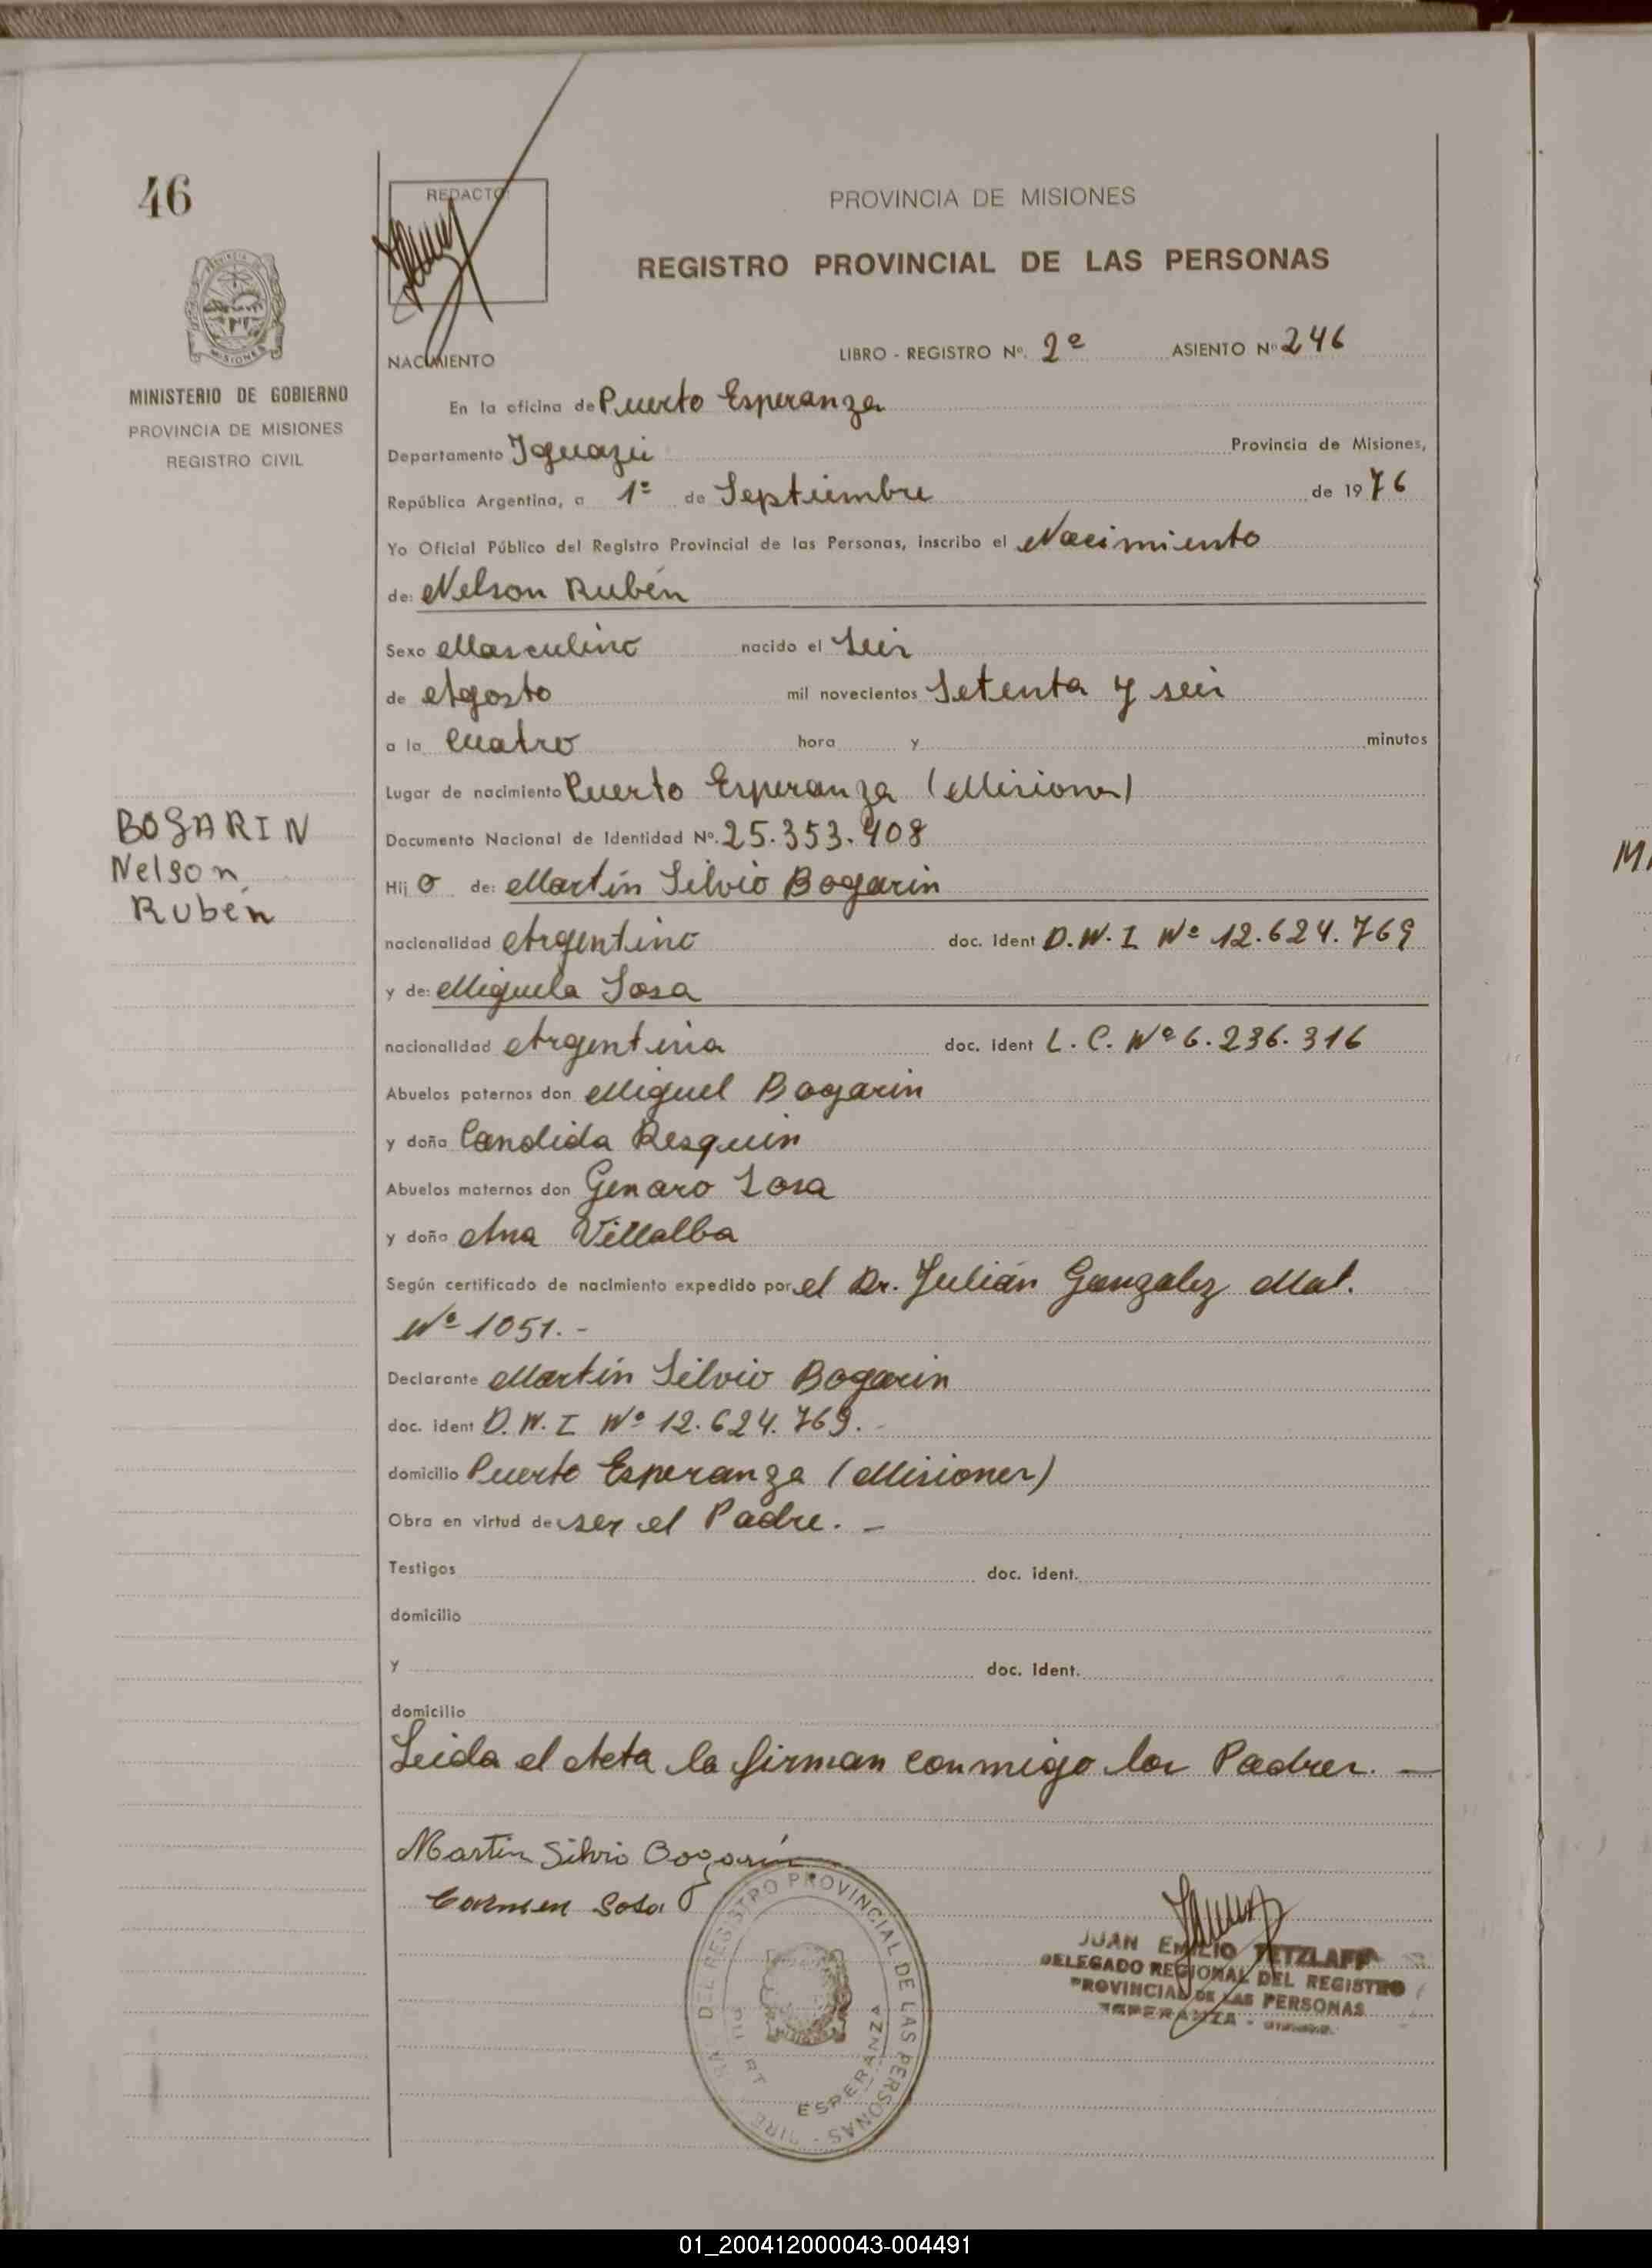 46
REDACTO:
PROVINCIA DE MISIONES
REGISTRO PROVINCIAL DE LAS PERSONAS
MINISTERIO DE GOBIERNO
PROVINCIA DE MISIONES
REGISTRO CIVIL
NACIMIENTO
LIBRO - REGISTRO Nº. 2º ASIENTO Nº 246
En la oficina de Puerto Esperanza
Departamento Iguazú Provincia de Misiones,
República Argentina, a 1º de Septiembre de 1976
Yo Oficial Público del Registro Provincial de las Personas, inscribo el Nacimiento
de: Nelson Rubén
Sexo Masculino nacido el Seis
de Agosto mil novecientos Setenta y seis
a la cuatro hora y minutos
Lugar de nacimiento Puerto Esperanza (Misiones)
BOGARIN
Nelson
Rubén
Documento Nacional de Identidad Nº. 25.353.408
Hij o de: Martín Silvio Bogarin
nacionalidad Argentino doc. Ident D.N.I Nº 12.624.769
y de: Miguela Sosa
nacionalidad Argentina doc. Ident L.C. Nº 6.236.316
Abuelos paternos don Miguel Bogarin
y doña Candida Resquin
Abuelos maternos don Genaro Sosa
y doña Ana Villalba
Según certificado de nacimiento expedido por el Dr. Julián Gonzalez Mat.
Nº 1051.-
Declarante Martín Silvio Bogarin
doc. ident D.N.I Nº 12.624.769.-
domicilio Puerto Esperanza (Misiones)
Obra en virtud de ser el Padre. -
Testigos doc. ident.
domicilio
y doc. Ident.
domicilio
Leida el Acta la firman conmigo los Padres. -
Martin Silvio Bogarín
Carmen Sosa
DEL REGISTRO PROVINCIAL DE LAS PERSONAS
ESPERANZA
JUAN EMILIO TETZLAFF
DELEGADO REGIONAL DEL REGISTRO
PROVINCIAL DE LAS PERSONAS
ESPERANZA -
01_200412000043-004491